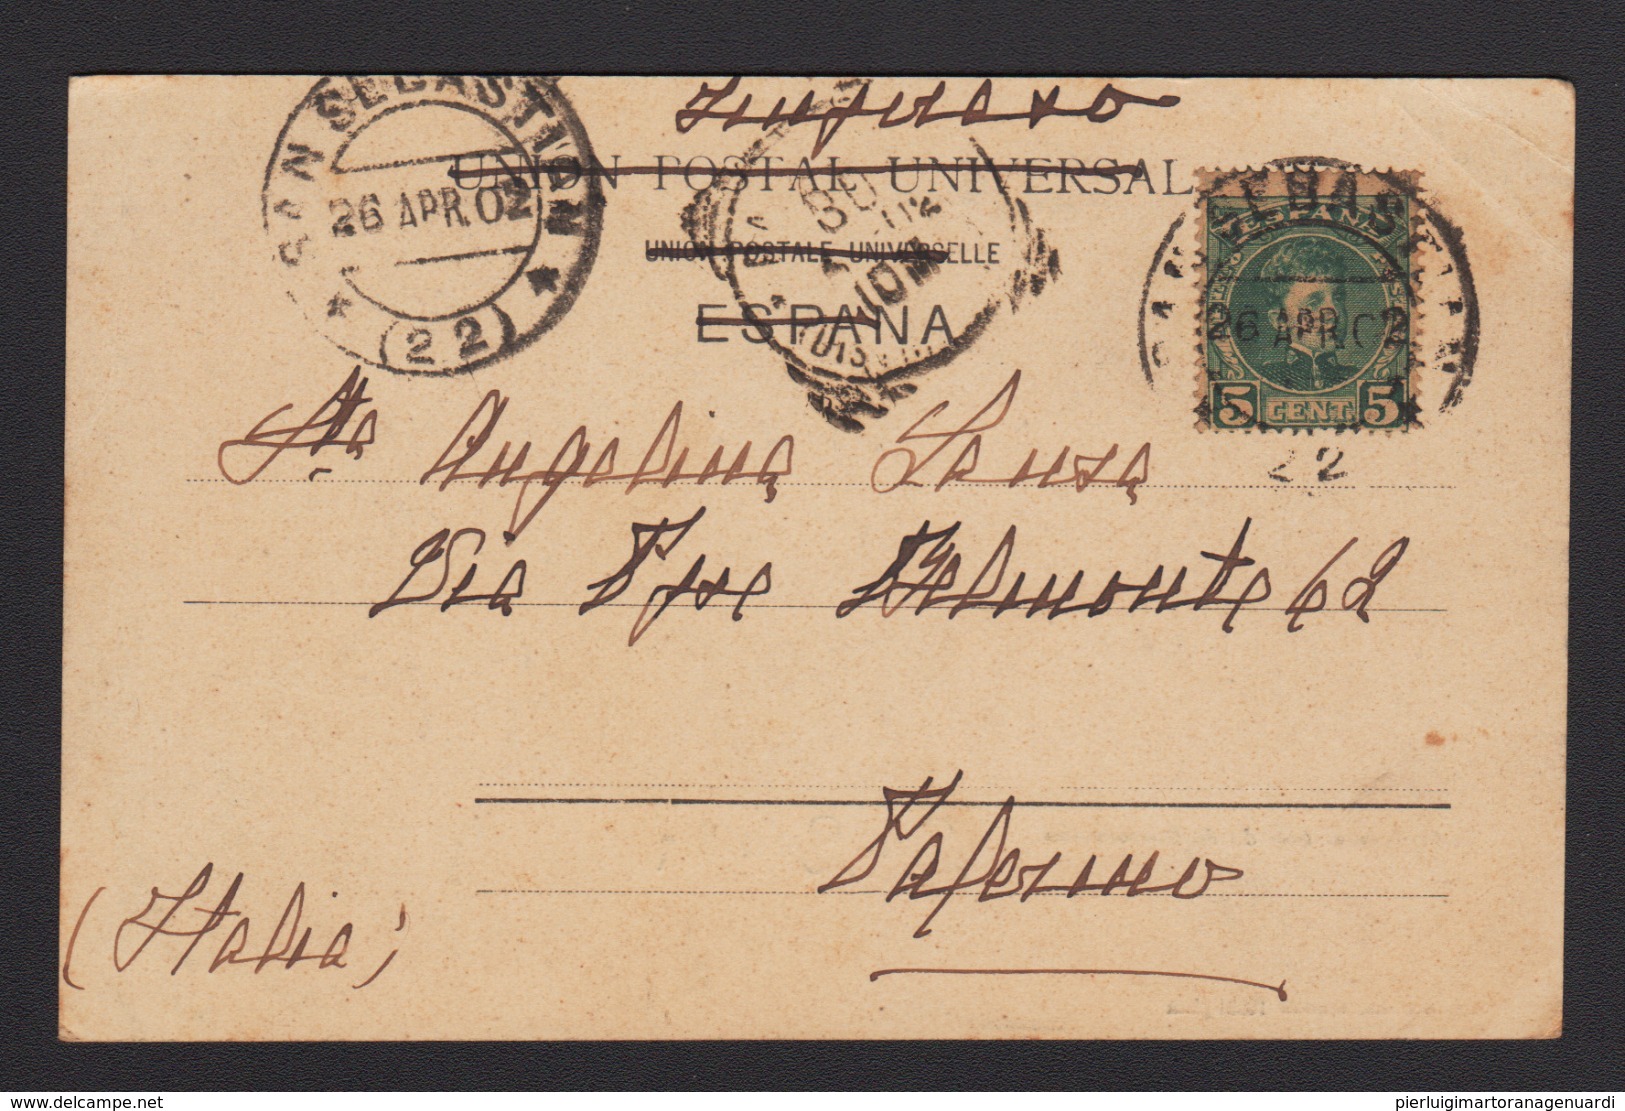 Impreso
UNION POSTAL UNIVERSAL
UNION POSTALE UNIVERSELLE
ESPAÑA
SAN SEBASTIAN
26 APR. 02
(22)
SAN SEBASTIAN
26 APR. 02
22
ESPAÑA
5 CENT. 5
10 M
Sta Angelina Lanza
Via Pspe Belmonte 62
Palermo
(Italia)
www.delcampe.net
pierluigimartoranagenuardi